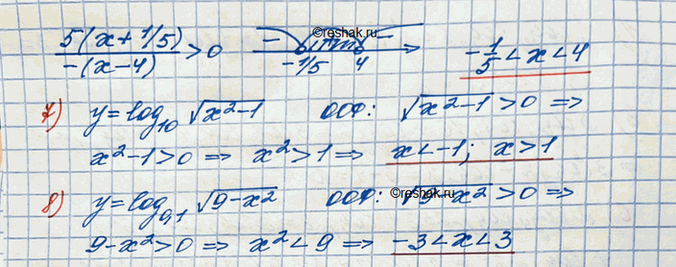 5(x+1/5)/-(x-4) > 0   - + -   -1/5   4   -1/5 < x < 4
©reshak.ru
7) y=log₁₀ √x²-1   ООФ: √x²-1 > 0 ⇒
x²-1>0 ⇒ x²>1 ⇒ x<-1; x>1
8) y=log₀,₁ √9-x²   ООФ: √9-x² > 0 ⇒
©reshak.ru
9-x²>0 ⇒ x²<9 ⇒ -3<x<3